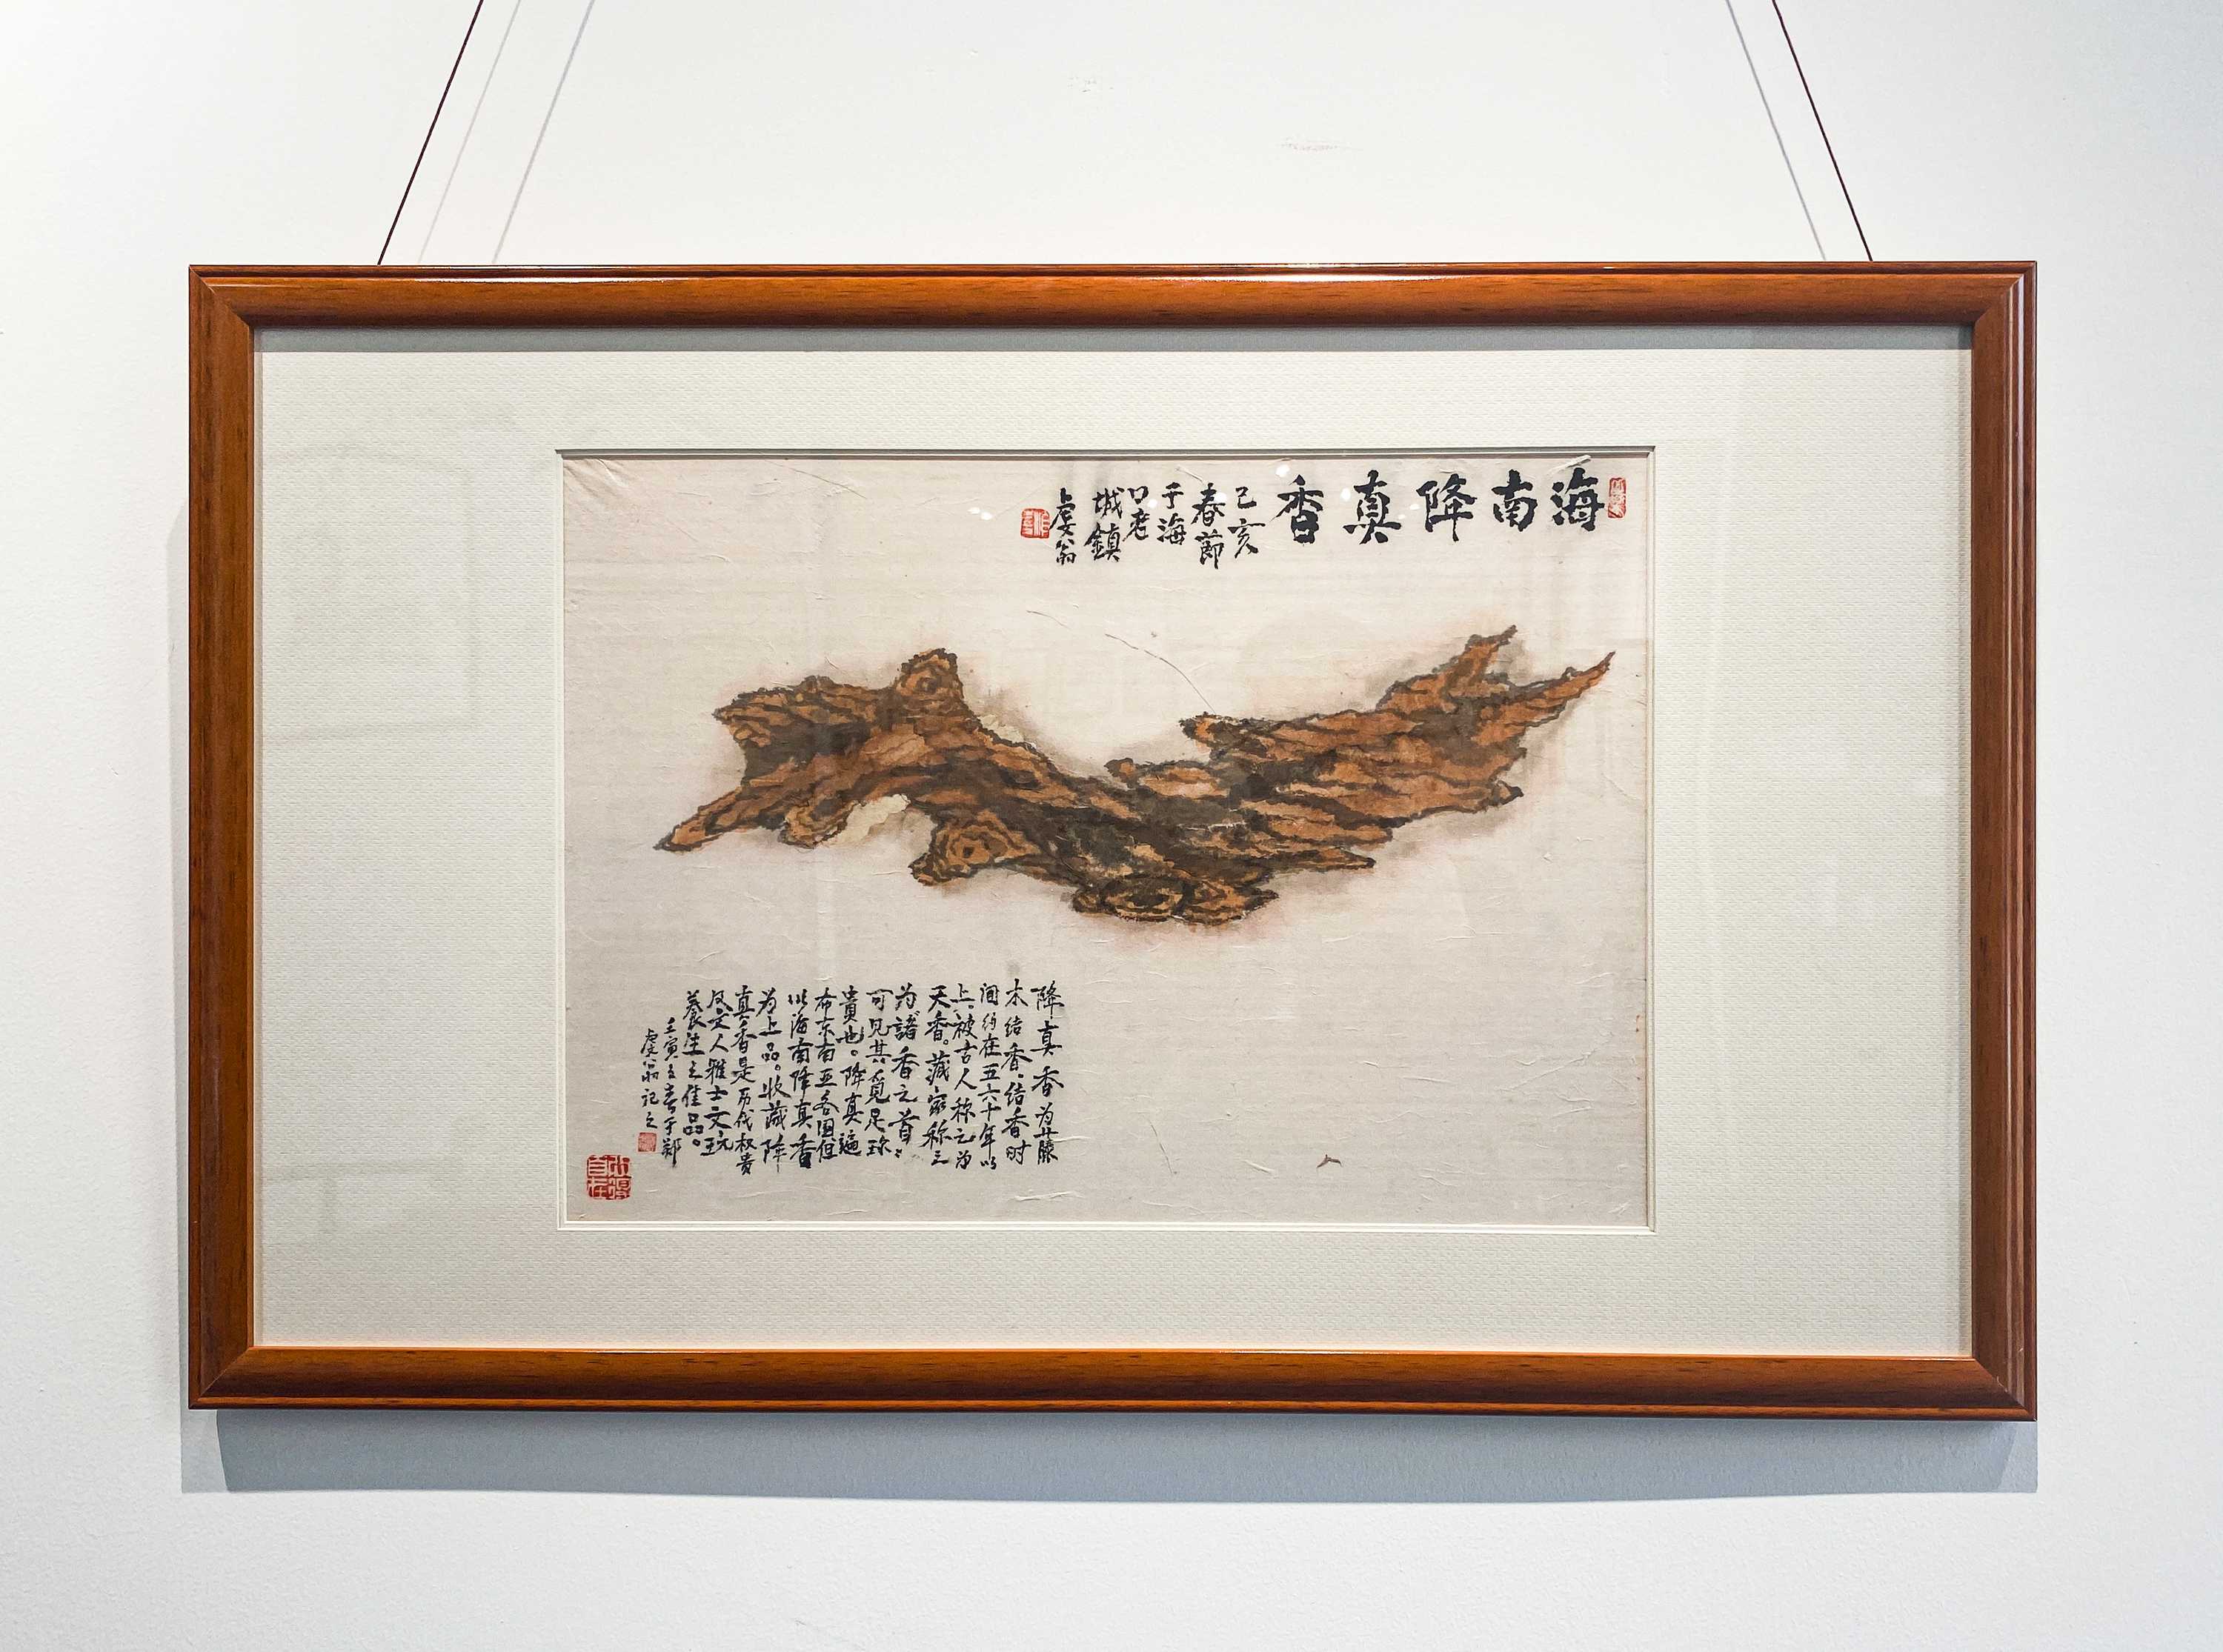 海南降真香
己亥
春節
于海
口老
城鎮
虔翁
降真香为藤
本结香。结香时
间约在五六十年以
上。被古人称之为
天香。藏家称之
为諸香之首。
可见其觅足珎
貴也。降真遍
布东南亚各国但
以海南降真香
为上品。收藏降
真香是历代权贵
文人雅士文玩
養生之佳品。
壬寅立春于鄭
虔翁记之